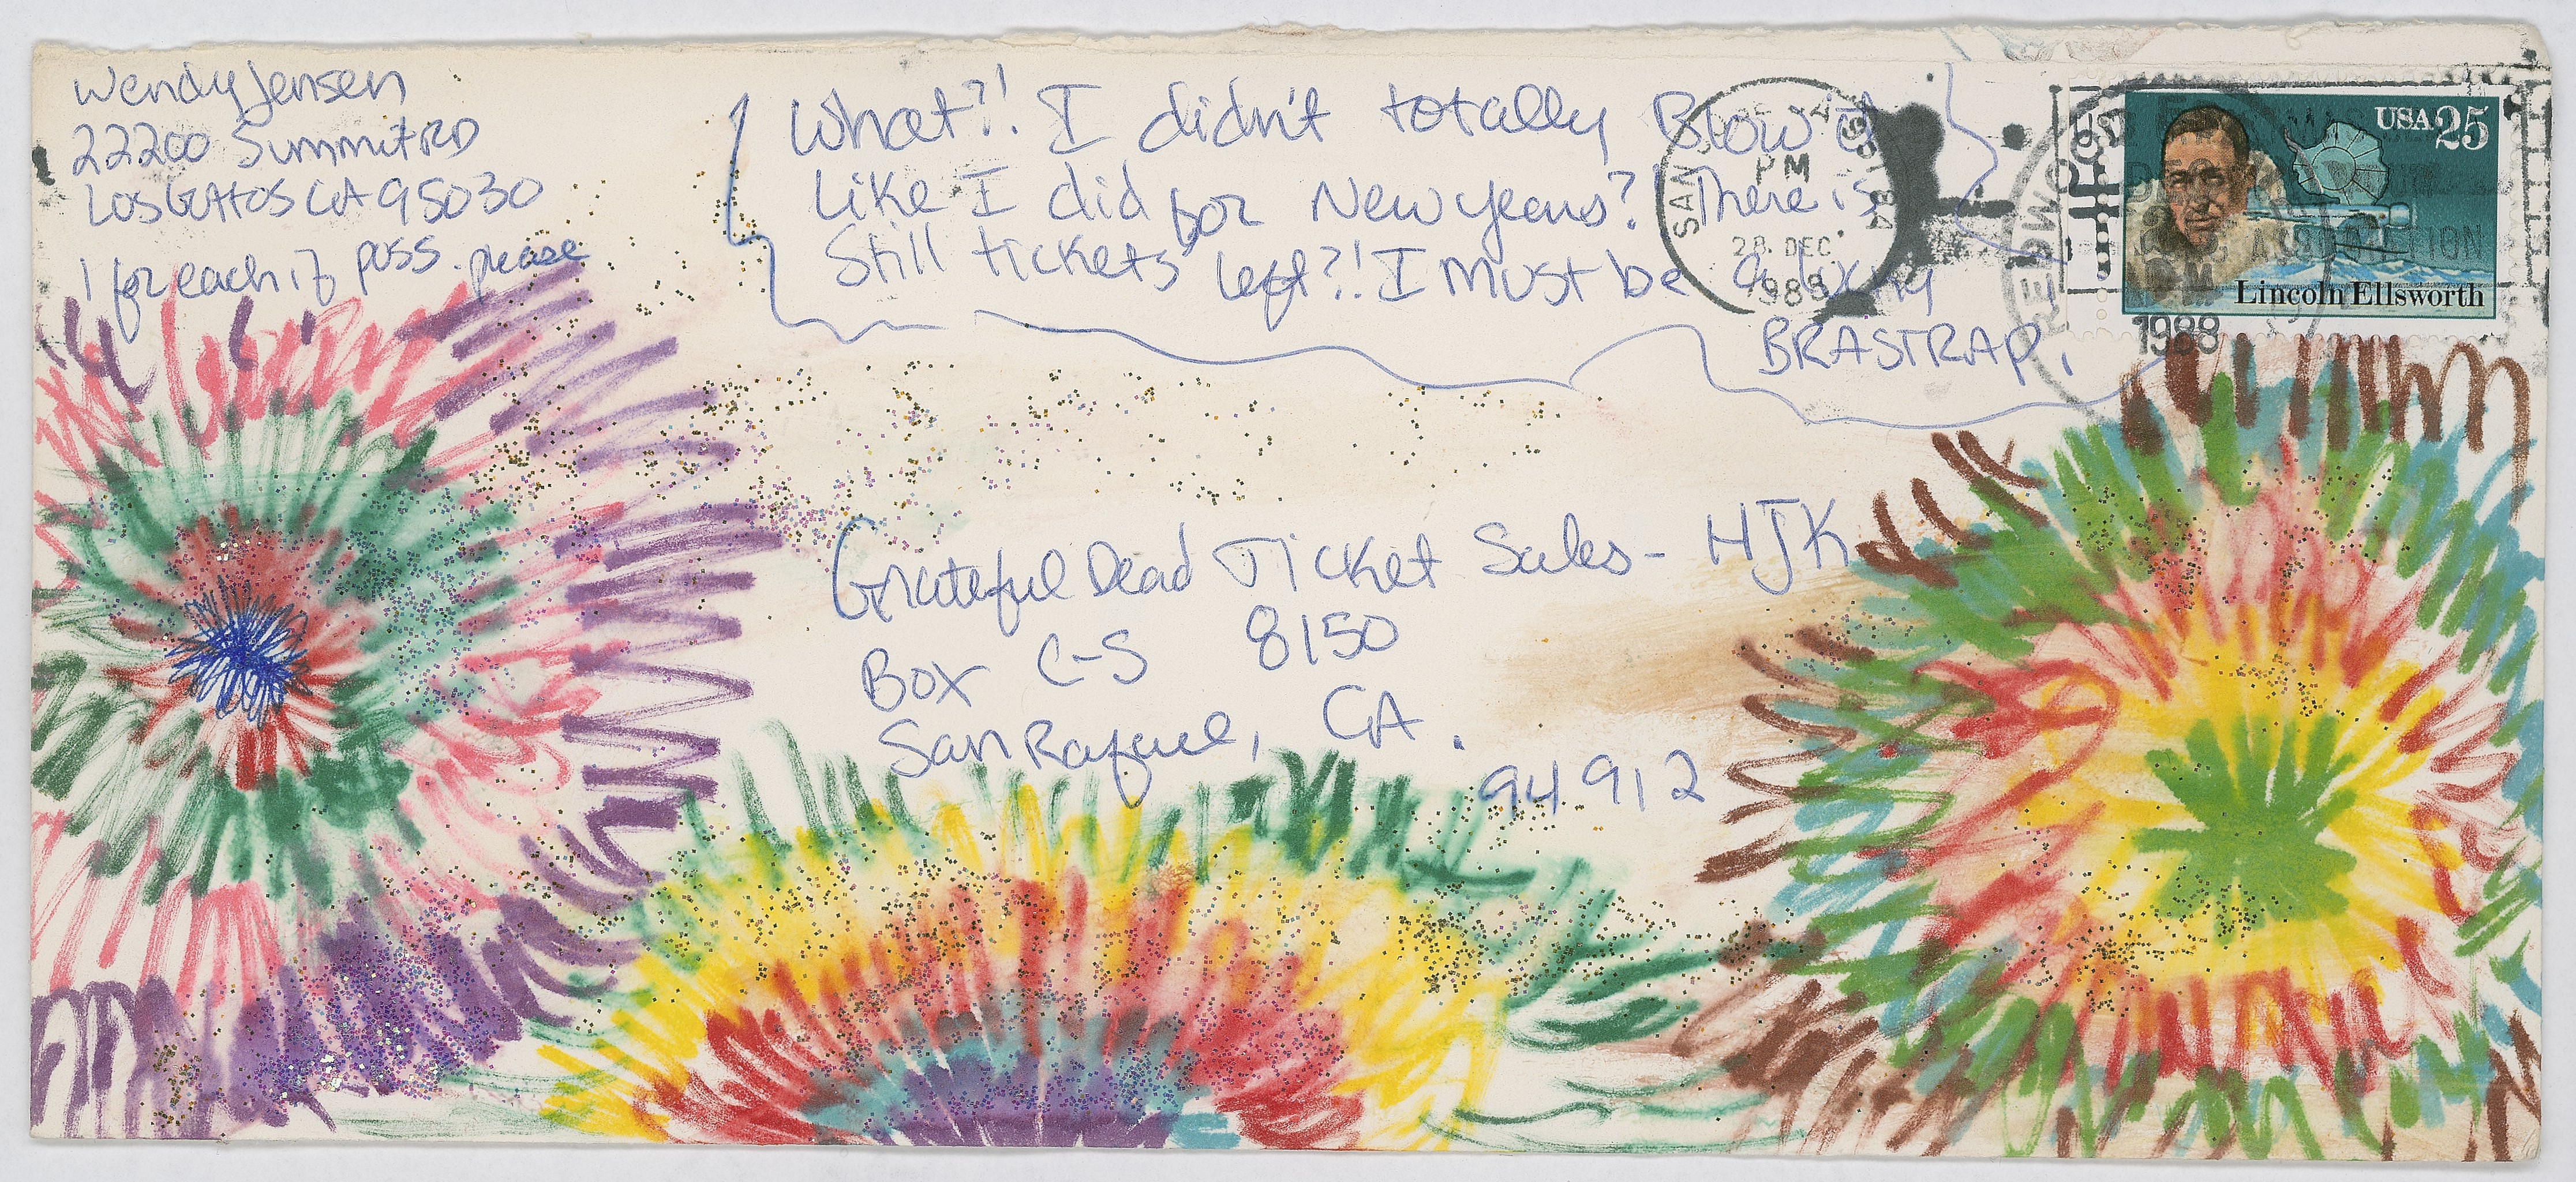 Wendy Jensen
22200 Summit RD
Los Gattos CA 95030
1 for each if poss. please
What?! I didn't totally Blow it
Like I did for New years? There is
Still tickets left?! I Must be a
BRASTRAP.
SAN
PM
28 DEC
1988
REDWO
1988
USA 25
Lincoln Ellsworth
Grateful Dead Ticket Sales - HJK
Box C-S 8150
San Rafael, CA.
94912